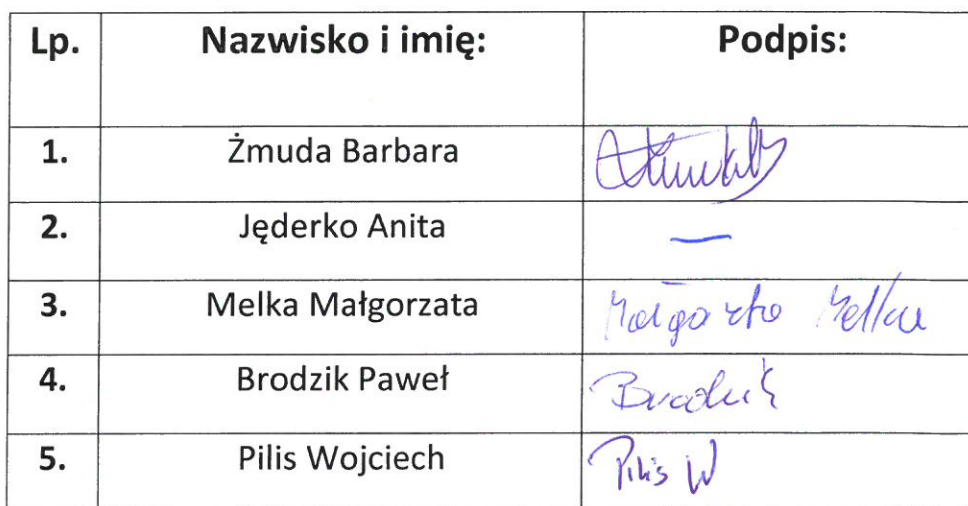 Lp. Nazwisko i imię: Podpis:
1. Żmuda Barbara
2. Jęderko Anita —
3. Melka Małgorzata Małgorzata Melka
4. Brodzik Paweł Brodzik
5. Pilis Wojciech Pilis W